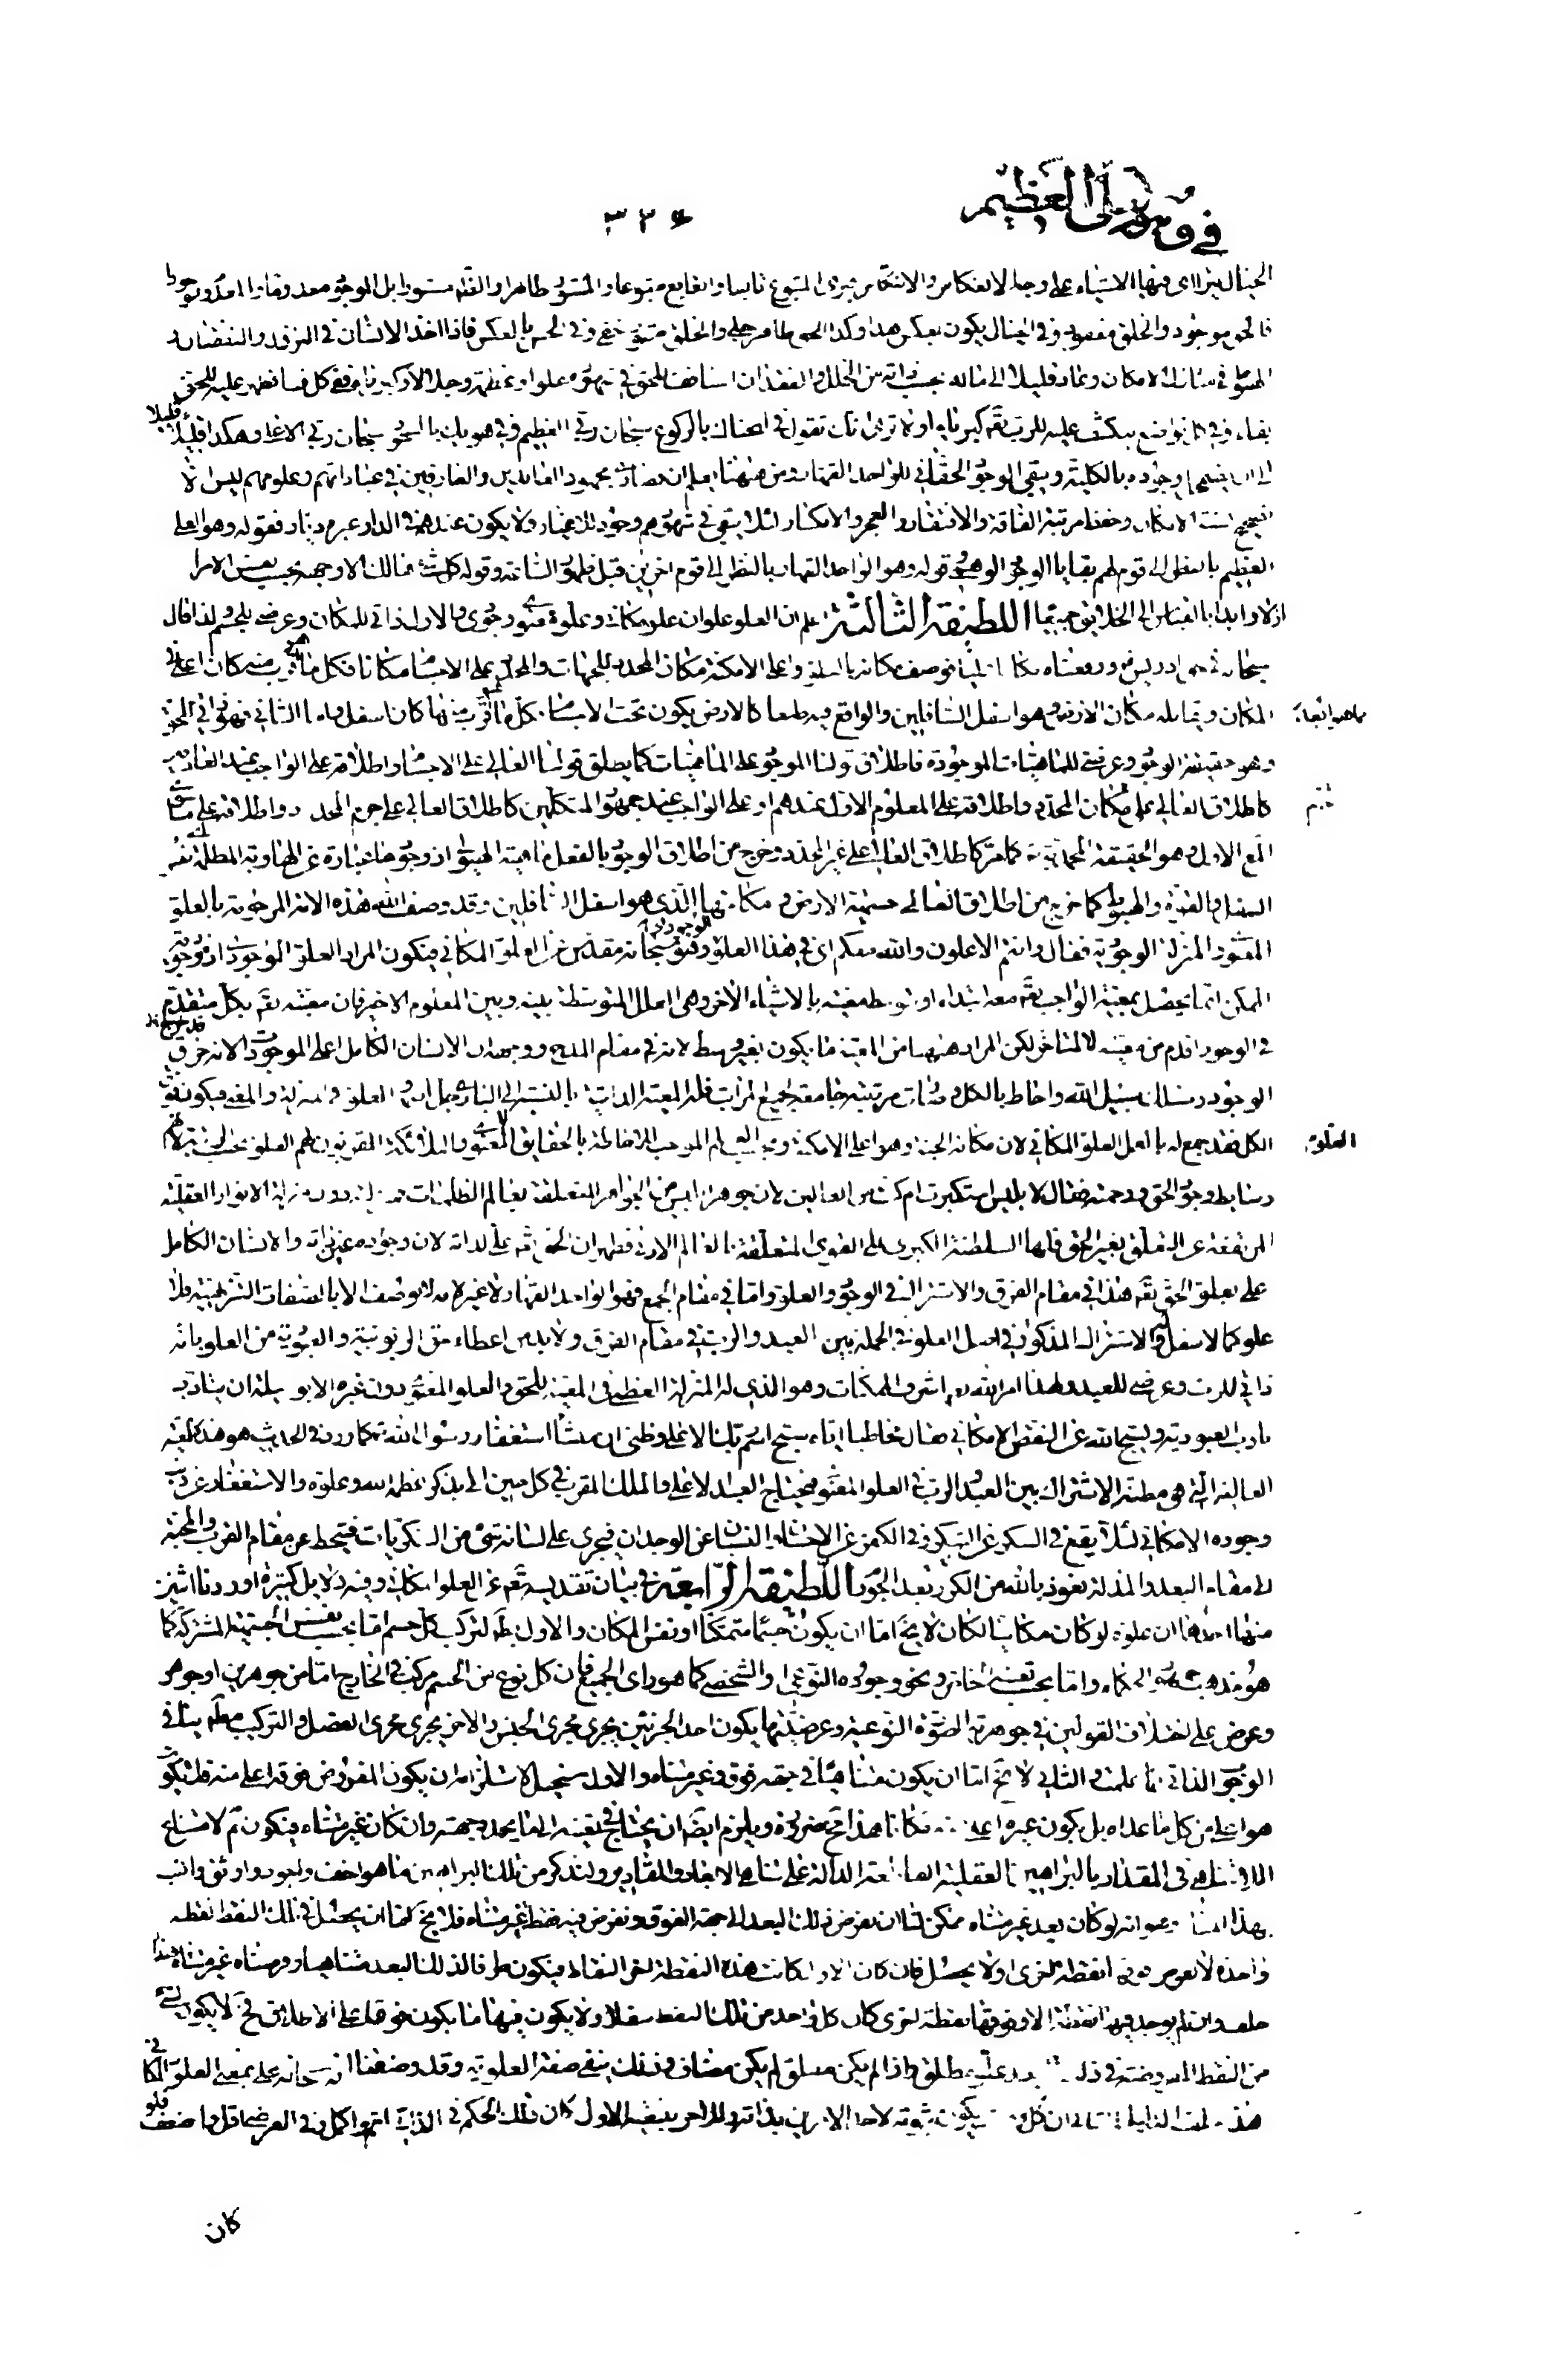 في قوله وهو العلي العظيم
٣٣٤
الخيال ليرى فيها الاشياء على وجه الانعكاس والانتكاس فيرى المتبوع تابعا والتابع متبوعا والمستور ظاهرا والظاهر مستورا بل الموجود معدوما والمعدوم موجودا
فالحق موجود والخلق مفقود وفي الخيال يكون بعكس هذا وكذا الحق ظاهر جلي والخلق خفي وفي الحس بالعكس فاذا اخذ الانسان في النزول والنقصان
في منازل الامكان وعاد قليلا الى ماله بحسب ذاته من الخلل والفقدان استأنف للحق في شهوده علوا وعظمة وجلالا وكبرياء ففي كل فناء يظهر عليه للحق
بقاء وفي كل تواضع ينكشف عليه للرب تعالى كبرياء اولا ترى ان تقول في انحنائك بالركوع سبحان ربي العظيم وفي هويك بالسجود سبحان ربي الاعلى وهكذا قليلا قليلا
الى ان يضمحل وجوده بالكلية ويبقى الوجود الحقاني للواحد القهار ومن ههنا يعلم ان مجهود العابدين والعارفين في عباداتهم وعلومهم ليس الا
تصحيح نسبة الامكان وحفظ مرتبة الفاقة والافتقار والعجز والانكسار لئلا يبقى في شهودهم وجود للاغيار ولا يكون عندهم في الدار غيره ديار فقوله وهو العلي
العظيم بالنظر الى قوم لهم بقايا الوجود الوهمي وقوله وهو الواحد القهار بالنظر الى قوم اخرين قبل ظهور الساعة وقوله كل شيء هالك الا وجهه بحسب نفس الامر
ازلا وابدا بالقياس الى الخلايق جميعا اللطيفة الثالثة اعلم ان العلو علوان علو مكاني وعلو معنوي وجودي والاول ذاتي للمكان وعرضي للجسم لذا قال
سبحانه في حق ادريس ورفعناه مكانا عليا فوصف مكانه بالعلو واعلى الامكنة مكان المحدد للجهات والمحدد اعلى الاجسام مكانا فكل ما يقرب منه كان اعلى في
المكان ويقابله مكان الارض وهو اسفل السافلين والواقع فيه طبعا كالارض يكون تحت الاجسام فكل ما اقرب منها كان اسفل واما الثاني فهو ذاتي للحق
وهو حقيقة الوجود وعرضي للماهيات الموجودة فاطلاق قولنا الموجود على الماهيات كما يطلق قولنا العالي على الاجسام واطلاقه على الواجب عند العارفين
كاطلاق العالي على مكان المحدد واطلاقه على المعلوم الاول عندهم او على الواجب عند جمهور المتكلمين كاطلاق العالي على جرم المحدد واطلاقه على ما سوى
المعلول الاول وهو الحقيقة المحمدية كما مر كاطلاق العالي على غير المحدد وخرج من اطلاق الوجود بالفعل ماهية الهيولى اذ وجودها عبارة عن الهاوية المظلمة
والقوة والهيولى كما خرج من اطلاق العالي جسمية الارض ومكانها الذي هو اسفل السافلين وقد وصف الله هذه الامة المرحومة بالعلو
المعنوي والمنزلة الوجودية فقال وانتم الاعلون والله معكم اي في هذا العلو الوجودي وهو سبحانه مقدس عن العلو المكاني فيكون المراد العلو الوجودي اذ وجود
الممكن انما يحصل بمعية الواجب تعالى معه ابتداء او بتوسط معيته بالاشياء الاخر وهي العلل المتوسطة بينه وبين المعلوم الاخير فان معيته تعالى بكل متقدم
في الوجود اقدم من معيته للمتاخر لكن المراد ههنا من المعية ما يكون بغير وسط لانه في مقام المدح ووجهه ان الانسان الكامل اعلى الموجودات لانه خرق
الوجود وسلك سبيل الله واحاط بالكل وصارت مرتبته جامعة لجميع المراتب فله المعية الذاتية بالنسبة الى الباري فله العلو في المنزلة والمعنى فيكون فوق
الكل فقد جمع له بالعمل العلو المكاني لان مكانه الجنة وهو اعلى الامكنة وبالعلم الموجب للاحاطة بالحقايق العلو المعنوي والملائكة المقربون لهم العلو بحسب مرتبتهم
وسايط وجود الحق ورحمته فقال لابليس استكبرت ام كنت من العالين لان جوهر ابليس من الجواهر المتعلقة بعالم الظلمات دون الانوار العقلية
المرتفعة عن التعلق بغير الحق فلها السلطنة الكبرى على القوى المتعلقة بالعالم الادنى فظهر ان الحق تعالى علي لذاته لان وجوده عين ذاته والانسان الكامل
علي بعلو الحق تعالى هذا في مقام الفرق والاشتراك في الوجود والعلو واما في مقام الجمع فهو الواحد القهار لا غيره لا يوصف الا بالصفات التنزيهية فلا
علو كما لا سفل والاشتراك المذكور في اصل العلو في الجملة بين العبد والرب في مقام الفرق ولا بد من اعطاء حق الربوبية والعبودية من العلو بانه
ذاتي للرب وعرضي للعبد ولهذا امر الله تعالى اشرف الممكنات وهو الذي له المنزلة العظمى في المعية للحق والعلو المعنوي دون غيره الا بوسيلة ان يتادب
بادب العبودية ويسبح الله عن النقص الامكاني فقال مخاطبا اياه سبح اسم ربك الاعلى وظني ان منشأ استغفار رسول الله كما ورد في الحديث هو هذه المعية
العالية التي هي مظنة الاشتراك بين العبد والرب في العلو المعنوي فيحتاج العبد الاعلى والملك المقرب في كل حين الى ان يذكر عظمة الله وعلوه والاستغفار عن ذنب
وجوده الامكاني لئلا يقع في السكر عن الشكر وفي الكمون عن الاحساس والنسيان عن الوجدان فيجري على لسانه شيء من الكبريات فيحط عن مقام القرب والمحبة
الى مقام البعد والمذلة نعوذ بالله من الكور بعد الحور اللطيفة الرابعة في بيان تقديسه تعالى عن العلو المكاني وفيه دلايل كثيرة اوردنا اثنين
منها احدهما ان علوه لو كان مكانيا لكان لا يخ اما ان يكون جسما متمكنا او نفس المكان والاول بط لتركب كل جسم اما بحسب نفس الجسمية المشتركة كما
هو مذهب جمهور الحكماء واما بحسب نفسه الخاص ونحو وجوده النوعي والشخصي كما هو راي الجميع فان كل نوع من الجسم مركب في الخارج اما من جوهرين او جوهر
وعرض على اختلاف القولين في جوهرية الصورة النوعية وعرضيتها يكون احد الجزئين يجري مجرى الجنس والاخر يجري مجرى الفصل والتركيب مطلقا ينافي
الوجوب الذاتي كما علمت والثاني لا يخ اما ان يكون متناهيا في جهة فوق او غير متناه والاول مستحيل لاستلزامه ان يكون المفروض فوقه اعلى منه فلا يكون
هو اعلى من كل ما عداه بل يكون غيره اعلى منه مكانا هذا مح ضرورة ويلزم ايضا ان يحتاج في تعينه الى ما يحدد جهته وان كان غير متناه فيكون مح لامتناع
اللاتناهي في المقدار بالبراهين العقلية القاطعة الدالة على تناهي الابعاد والمقادير ولنذكر من تلك البراهين ما هو اخف واجود واوثق وانسب
بهذا المقام وهو انه لو كان بعد غير متناه ممكن لنا ان نفرض في ذلك البعد الى جهة الفوق ونفرض فيه نقط غير متناه فلا يخ اما ان يحصل في تلك النقط نقطة
واحدة لا نفرض فوقها نقطة اخرى او لا يحصل فان كان الاول كانت هذه النقطة اخر النقاط فيكون طرفا لذلك البعد متناهيا وفرضناه غير متناه هذا
خلف وان لم يوجد فيها نقطة الا وفوقها نقطة اخرى كان كل واحد من تلك النقط سفلا ولا يكون فيها ما يكون فوقا على الاطلاق فح لا يكون لشيء
من النقط المفروضة في ذلك البعد علو مطلق واذا لم يكن علو مطلق لم يكن مضاف وذلك ينفي صفة العلوية وقد وضعنا انه سبحانه علي بمعنى العلو المكاني
هذا خلف الدليل الثاني ان كل صفة يكون ثبوته لاحد الامرين بذاته وللاخر بتبعية الاول كان ذلك الحكم في الذاتي اتم واكمل وفي العرضي اقل واضعف فلو
كان